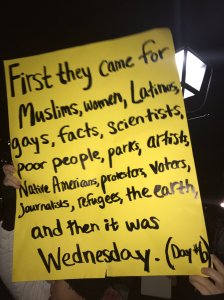 First they came for
Muslims, women, Latinus,
gays, facts, scientists,
poor people, parks, artists,
Native Americans, protestors, voters,
journalists, refugees, the earth,
and then it was
Wednesday. (Day #6)